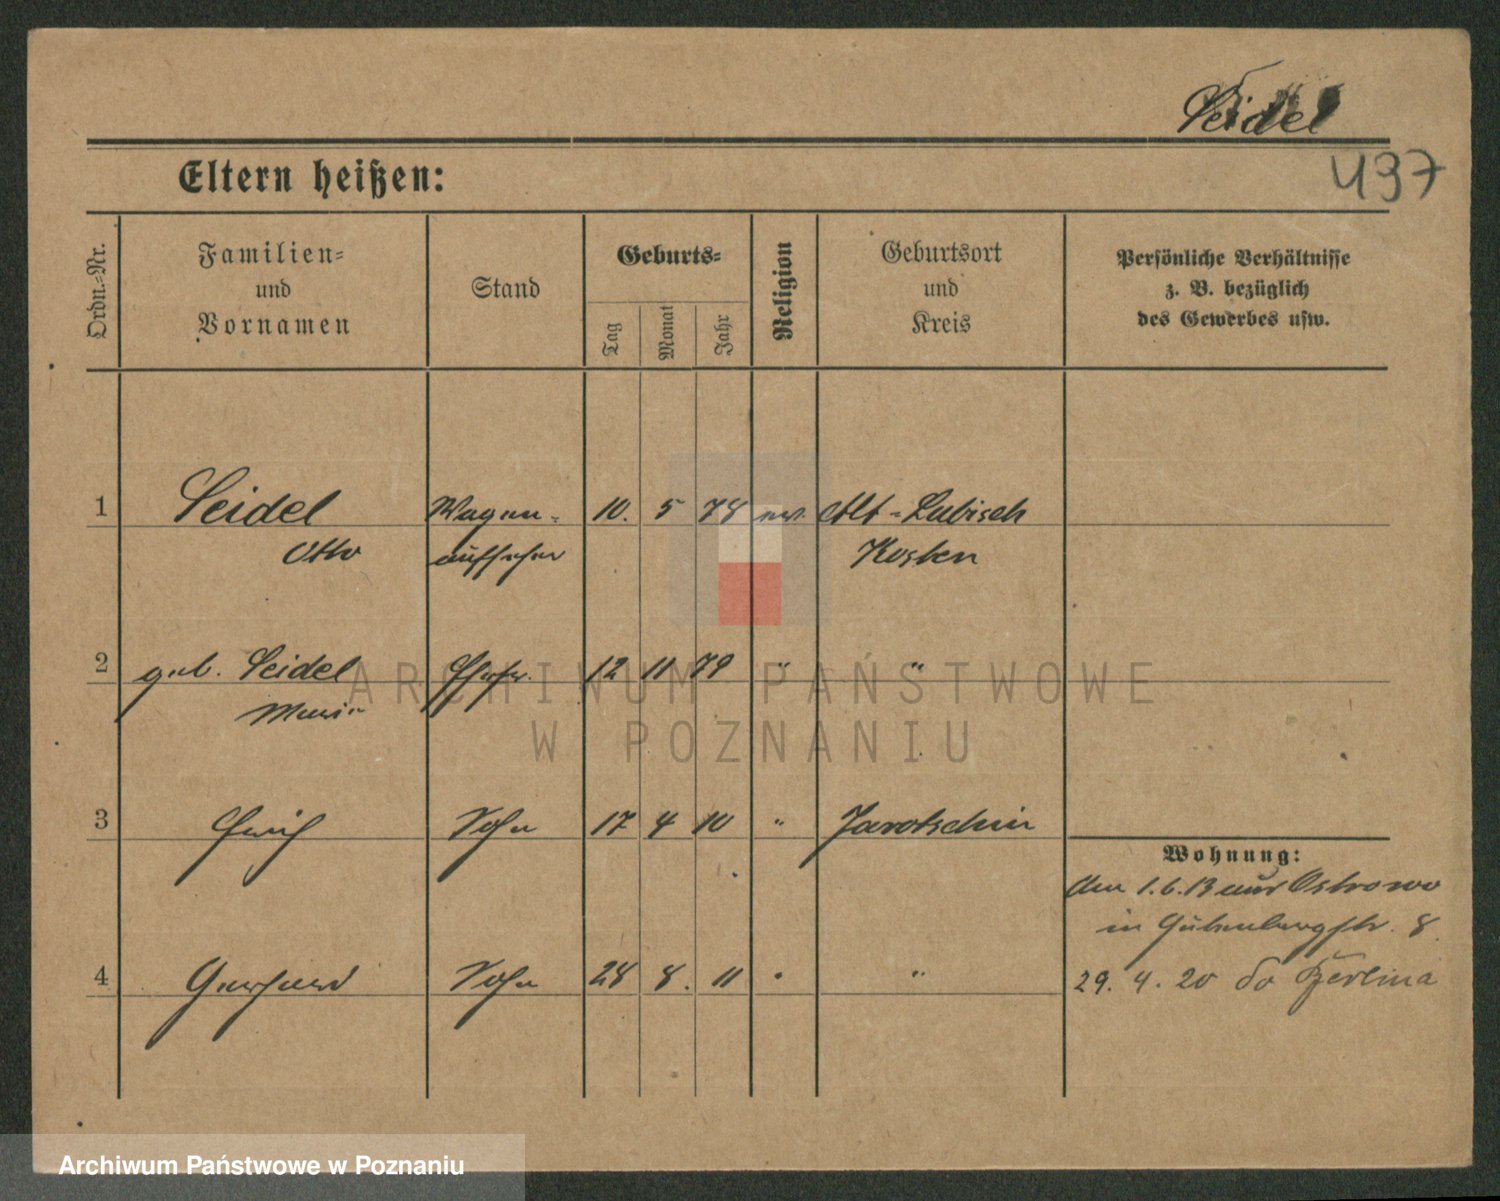 Seidel
497
Eltern heißen:
Ordn.-Nr.
Familien-
und
Vornamen
Stand
Geburts-
Tag
Monat
Jahr
Religion
Geburtsort
und
Kreis
Persönliche Verhältnisse
z. B. bezüglich
des Gewerbes usw.
1 Seidel Wagen- 10. 5 78 ev. Alt-Lubisch
Otto aufseher Kosten
2 geb. Seidel Ehefr. 12 11 79 " "
Marie
3 Sohn 17 4 10 " Jarotschin
Wohnung:
Am 1.6.13 aus Ostrowo
in Gutenbergstr. 8
4 Gerhard Sohn 28 8. 11 " "
29. 4. 20 do Berlina
ARCHIWUM PAŃSTWOWE
W POZNANIU
Archiwum Państwowe w Poznaniu